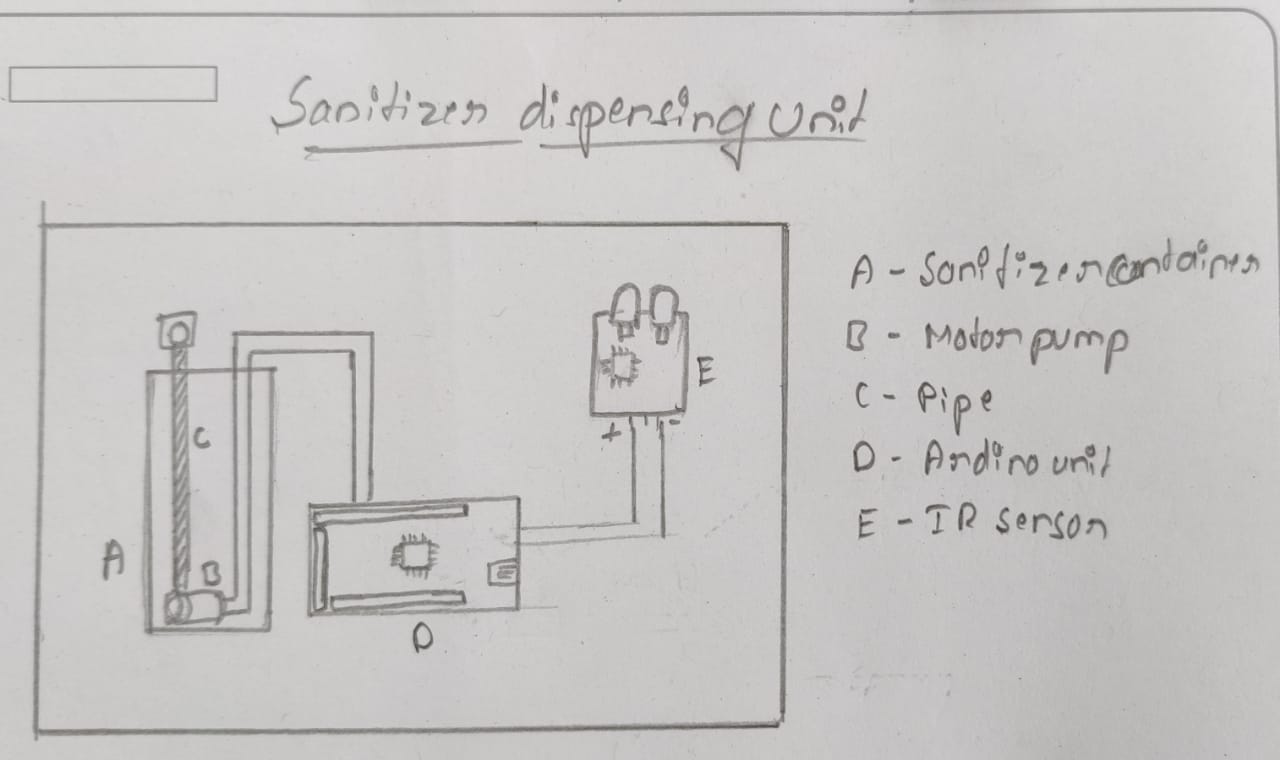 Sanitizer dispensing unit
A - Sanitizer container
B - Motor pump
C - Pipe
D - Ardino unit
E - IR sensor
C
E
+ -
A
B
D